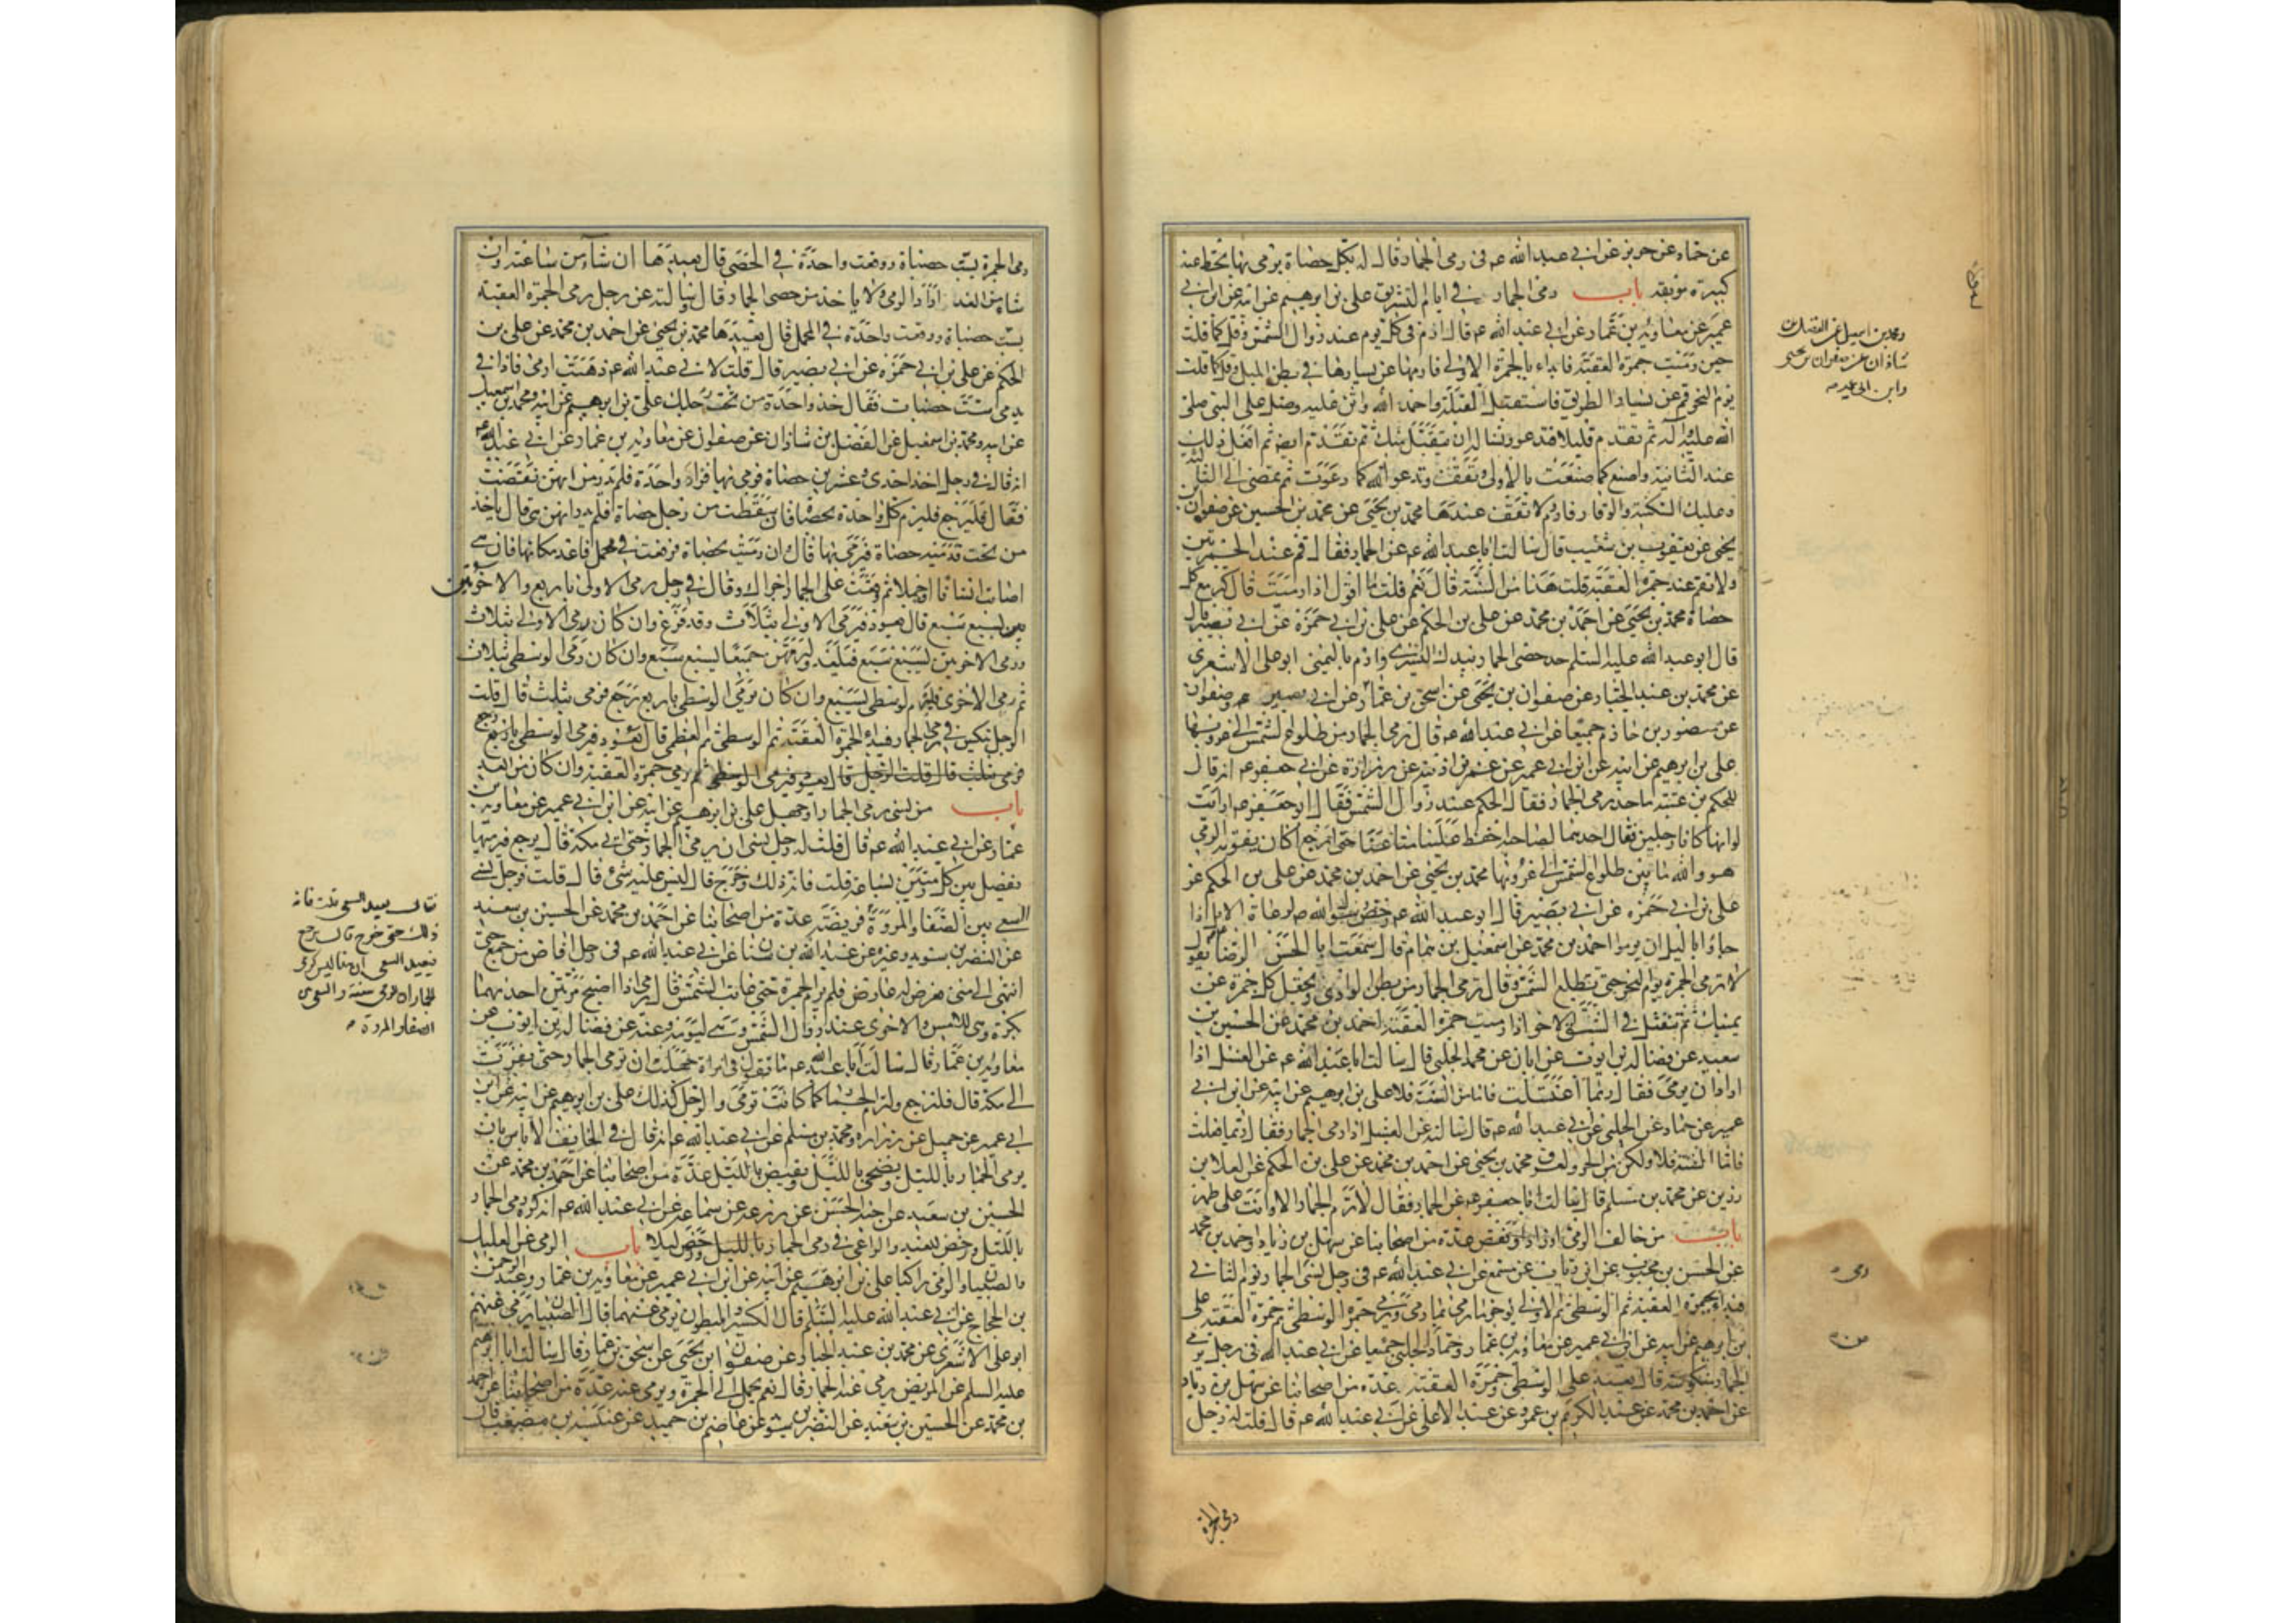 عن حماد عن حريز عن ابي عبد الله عم في رمي الجمار قال له بكل حصاة يرمي بها تحط عنه
كبيرة موبقة باب رمي الجمار في ايام التشريق علي بن ابرهيم عن ابيه عن ابن ابي
عمير عن معاوية بن عمار عن ابي عبد الله عم قال ارم في كل يوم عند زوال الشمس وقل كما قلت
حين رميت جمرة العقبة فابداء بالجمرة الاولى فارمها عن يسارها في بطن المسيل وقل كما قلت
يوم النحر قم عن يسار الطريق فاستقبل القبلة واحمد الله واثن عليه وصل على النبي صلى
الله عليه وآله ثم تقدم قليلا فتدعو وتساله ان يتقبل منك ثم تقدم ايضا ثم افعل ذلك
عند الثانية واصنع كما صنعت بالاولى وتقف وتدعو الله كما دعوت ثم تمضي الى الثالثة
وعليك السكينة والوقار فارم ولا تقف عندها محمد بن يحيى عن محمد بن الحسين عن صفوان بن
يحيى عن يعقوب بن شعيب قال سالت ابا عبد الله عم عن الجمار فقال قم عند الجمرتين
ولا تقم عند جمرة العقبة قلت هذا من السنة قال نعم قلت ما اقول اذا رميت قال كبر مع كل
حصاة محمد بن يحيى عن احمد بن محمد عن علي بن الحكم عن علي بن ابي حمزة عن ابي بصير قال
قال ابو عبد الله عليه السلم خذ حصى الجمار بيدك اليسرى وارم باليمنى ابو علي الاشعري
عن محمد بن عبد الجبار عن صفوان بن يحيى عن اسحق بن عمار عن ابي بصير عم وصفوان
عن منصور بن حازم جميعا عن ابي عبد الله عم قال رمي الجمار من طلوع الشمس الى غروبها
علي بن ابرهيم عن ابيه عن ابن ابي عمير عن عمر بن اذينة عن زرارة عن ابي جعفر عم انه قال
للحكم بن عتيبة ما حد رمي الجمار فقال الحكم عند زوال الشمس فقال ابو جعفر عم ارايت
لو انهما كانا رجلين فقال احدهما لصاحبه احفظ علينا متاعنا حتى ارجع اكان يفوته الرمي
هو والله ما بين طلوع الشمس الى غروبها محمد بن يحيى عن احمد بن محمد عن علي بن الحكم عن
علي بن ابي حمزة عن ابي بصير قال قال ابو عبد الله عم رخص رسول الله ص لرعاة الابل اذا
جاؤا بالليل ان يرموا احمد بن محمد عن اسمعيل بن همام قال سمعت ابا الحسن الرضا عم يقول
لا ترمي الجمرة يوم النحر حتى تطلع الشمس وقال ترمي الجمار من بطن الوادي وتجعل كل جمرة عن
يمينك ثم تنفتل في الشق الاخر اذا رميت جمرة العقبة احمد بن محمد عن الحسين بن
سعيد عن فضالة بن ايوب عن ابان عن محمد الحلبي قال سالت ابا عبد الله عم عن الغسل اذا
اراد ان يرمي فقال ربما اغتسلت فاما من السنة فلا علي بن ابرهيم عن ابيه عن ابن ابي
عمير عن حماد عن الحلبي عن ابي عبد الله عم قال سالته عن الغسل اذا رمى الجمار فقال ربما فعلت
فاما السنة فلا ولكن من الحر والعرق محمد بن يحيى عن احمد بن محمد عن علي بن الحكم عن العلا بن
رزين عن محمد بن مسلم قال سالت ابا جعفر عم عن الجمار فقال لا ترم الجمار الا وانت على طهر
باب من خالف الرمي او زاد او نقص عدة من اصحابنا عن سهل بن زياد واحمد بن محمد
عن الحسن بن محبوب عن ابن رئاب عن مسمع عن ابي عبد الله عم في رجل نسي الجمار يوم الثاني
فبداء بجمرة العقبة ثم الوسطى ثم الاولى يوخر ما رمى بما رمى ويرمي جمرة الوسطى ثم جمرة العقبة علي
بن ابرهيم عن ابيه عن ابن ابي عمير عن معاوية بن عمار وحماد عن الحلبي جميعا عن ابي عبد الله في رجل رمى
الجمار منكوسة قال يعيد على الوسطى وجمرة العقبة عدة من اصحابنا عن سهل بن زياد
عن احمد بن محمد عن عبد الكريم بن عمرو عن عبد الاعلى عن ابي عبد الله عم قال قلت له رجل
ومحمد بن اسمعيل عن الفضل بن
شاذان عن صفوان بن يحيى
وابن ابي عمير
رمى الجمرة
رمى الجمرة بست حصياة ووقعت واحدة في الحصى قال يعيدها ان شاء من ساعته وان
شاء من الغد اذا اراد الرمي ولا ياخذ من حصى الجمار قال وسالته عن رجل رمى الجمرة العقبة
بست حصياة ووقعت واحدة في المحمل قال يعيدها محمد بن يحيى عن احمد بن محمد عن علي بن
الحكم عن علي بن ابي حمزة عن ابي بصير قال قلت لابي عبد الله عم ذهبت ارمي فاذا في
يدي ست حصيات فقال خذ واحدة من تحت رجليك علي بن ابرهيم عن ابيه ومحمد بن اسمعيل
عن ابيه ومحمد بن اسمعيل عن الفضل بن شاذان عن صفوان عن معاوية بن عمار عن ابي عبد الله عم
انه قال في رجل اخذ احدى وعشرين حصاة فرمى بها فزاد واحدة فلم يدر من ايتهن نقصت
فقال فليرجع فليرم كل واحدة بحصاة فان سقطت من رجل حصاة فلم يدر ايتهن هي قال ياخذ
من تحت قدميه حصاة فيرمي بها قال وان رميت بحصاة فوقعت في محمل فاعد مكانها فان هي
اصابت انسانا او جملا ثم وقعت على الجمار اجزاك وقال في رجل رمى الاولى باربع والاخرتين
بسبع سبع قال يعود فيرمي الاولى بثلاث وقد فرغ وان كان رمى الاولى بثلاث
ورمى الاخرتين بسبع سبع فليعد وليرمهن جميعا بسبع سبع وان كان رمى الوسطى بثلاث
ثم رمى الاخرى فليرم الوسطى بسبع وان كان رمى الوسطى باربع رجع فرمى بثلث قال قلت
الرجل ينكس في رمي الجمار فيبدا بجمرة العقبة ثم الوسطى ثم العظمى قال يعود فيرمي الوسطى
ثم يرمي جمرة العقبة وان كان من الغد
باب من نسي رمي الجمار او جهل علي بن ابرهيم عن ابيه عن ابن ابي عمير عن معاوية بن
عمار عن ابي عبد الله عم قال قلت له رجل نسي ان يرمي الجمار حتى اتى مكة قال يرجع فيرميها
يفصل بين كل رميتين بساعة قلت فاته ذلك وخرج قال ليس عليه شئ قال قلت فرجل نسي
السعي بين الصفا والمروة عدة من اصحابنا عن احمد بن محمد عن الحسين بن سعيد
عن النضر بن سويد عن عبد الله بن سنان عن ابي عبد الله عم في رجل افاض من جمع حتى
انتهى الى منى فعرض له عارض فلم يرم الجمرة حتى غابت الشمس قال يرمي اذا اصبح مرتين احدهما
بكرة وهي للامس والاخرى عند زوال الشمس وهي ليومه وعنه عن فضالة بن ايوب عن
معاوية بن عمار قال سالت ابا عبد الله عم ما تقول في امراة جهلت ان ترمي الجمار حتى نفرت
الى مكة قال فلترجع ولترم الجمار كما كانت ترمي والرجل كذلك علي بن ابرهيم عن ابيه عن ابن
ابي عمير عن جميل عن زرارة ومحمد بن مسلم عن ابي عبد الله عم انه قال في الخايف لا باس بان
يرمي الجمار بالليل ويضحي بالليل ويفيض بالليل عدة من اصحابنا عن احمد بن محمد عن
الحسين بن سعيد عن اخيه الحسن عن زرعة عن سماعة عن ابي عبد الله عم انه كره رمي الجمار
بالليل ورخص للعبد والراعي في رمي الجمار ليلا باب الرمي عن العليل
والصبيان والرمي راكبا علي بن ابرهيم عن ابيه عن ابن ابي عمير عن معاوية بن عمار وعبد الرحمن
بن الحجاج عن ابي عبد الله عليه السلم قال الكسير والمبطون يرمى عنهما قال الصبيان يرمى عنهم
ابو علي الاشعري عن محمد بن عبد الجبار عن صفوان بن يحيى عن اسحق بن عمار قال سالت ابا ابرهيم
عليه السلم عن المريض يرمى عنه الجمار قال نعم يحمل الى الجمرة ويرمى عنه عدة من اصحابنا عن احمد
بن محمد عن الحسين بن سعيد عن النضر بن سويد عن عاصم بن حميد عن عنبسة بن مصعب قال
فقال يعيد السعي قلت فاته
ذلك حتى خرج قال يرجع
فيعيد السعي ان هذا ليس كرمي
الجمار ان الرمي سنة والسعي بين
الصفا والمروة